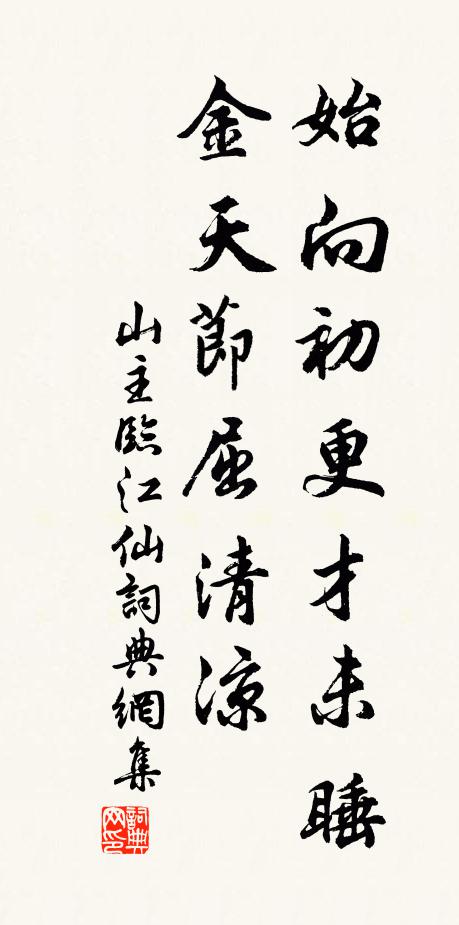 始向初更才未睡
金天節屆清涼
山主臨江仙詞典網集
詞典網印